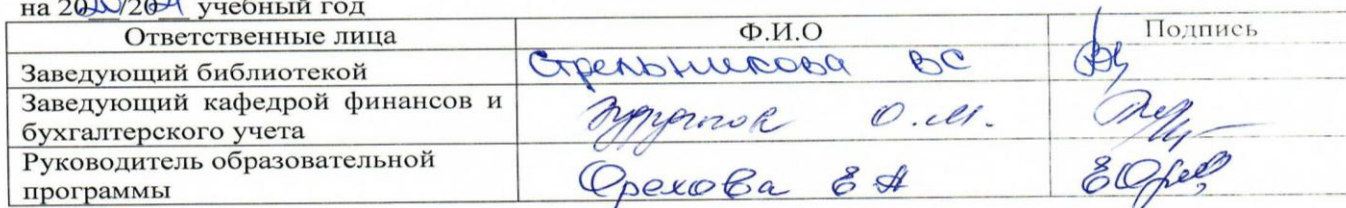 на 2020/2021 учебный год
Ответственные лица Ф.И.О Подпись
Заведующий библиотекой Стрельникова ВС
Заведующий кафедрой финансов и
бухгалтерского учета О.М.
Руководитель образовательной
программы Орехова Е А